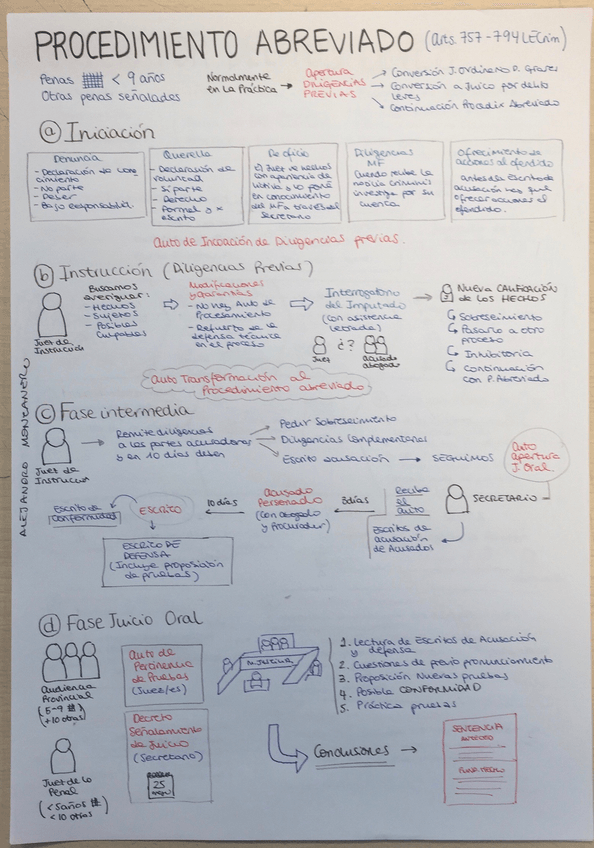 PROCEDIMIENTO ABREVIADO (Arts. 757-794 LECrim)
Penas < 9 años
Otras penas señaladas
Normalmente
en La Práctica
Apertura
DILIGENCIAS
PREVIAS
Conversión J. Ordinario D. Graves
Conversión a Juicio por delito
leves
Continuación Procedim Abreviado
a Iniciación
Denuncia
- Declaración de
cimiento
- No parte
- Deber
- Bajo responsabilid.
Querella
- Declaración de
voluntad
- Sí parte
- Derecho
- Formal y x
escrito
De oficio
el Juez ve hechos
con apariencia de
ilícitiva y lo pone
en conocimiento
del MF a través del
Secretario
Diligencias
MF
Cuando recibe la
noticia criminis
investiga por su
cuenta.
Ofrecimiento de
acciones al ofendido
antes del escrito de
acusación hay que
ofrecer acciones al
ofendido.
Auto de Incoación de Diligencias previas.
b Instrucción (Diligencias Previas)
Juez de
Instrucción
Buscamos
averiguar:
- Hechos
- Sujetos
- Posibles
Culpables
Modificaciones
y garantías
- No hay Auto de
Procesamiento
- Refuerzo de la
defensa técnica
en el proceso
Interrogatorio
del Imputado
(con asistencia
letrada)
Juez
¿?
acusado
abogado
Nueva CALIFICACIÓN
de los HECHOS
Sobreseimiento
Pasarlo a otro
proceso
Inhibitoria
Continuación
con P. Abreviado
Auto Transformación al
Procedimiento abreviado
ALEJANDRO MONTANERO
c Fase intermedia
Juez de
Instrucción
Remite diligencias
a las partes acusadoras
y en 10 días deben
Pedir Sobreseimiento
Diligencias Complementarias
Escrito acusación
SEGUIMOS
Auto
apertura
J. Oral.
SECRETARIO
Recibe
el
auto
Escritos de
acusación
de Acusados
3 días
Acusado
Personado
(con abogado
y Procurador)
10 días
ESCRITO
Escrito de
Conformidad
ESCRITO DE
DEFENSA
(Incluye proposición
de pruebas)
d Fase Juicio Oral
Audiencia
Provincial
(5-9
+10 otras)
Juez de lo
Penal
(<5 años
<10 otras)
Auto de
Pertinencia
de Pruebas
(Juez/es)
Decreto
Señalamiento
de Juicio
(Secretario)
25
1. Lectura de Escritos de Acusación
y defensa
2. Cuestiones de previo pronunciamiento
3. Proposición Nuevas pruebas
4. Posible CONFORMIDAD
5. Práctica pruebas
Conclusiones
SENTENCIA